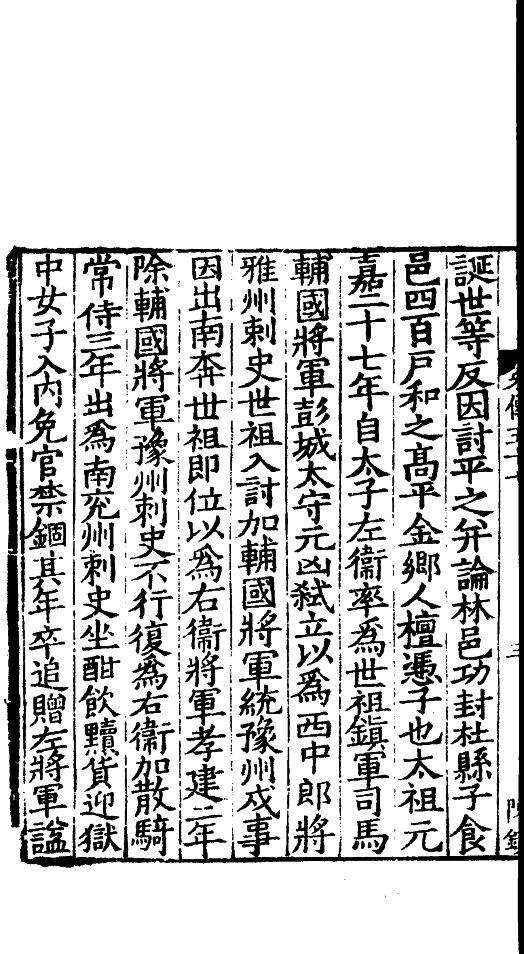 誕世等反因討平之并論林邑功封杜縣子食
邑四百户和之髙平金鄉人檀憑子也太祖元
嘉二十七年自太子左衞率爲世祖鎮軍司馬
輔國將軍彭城太守元凶弑立以爲西中郎將
雍州刺史世祖入討加輔國將軍統豫州戍事
因出南奔世祖即位以爲右衞將軍孝建二年
除輔國將軍豫州刺史不行復爲右衞加散騎
常侍三年出爲南兖州刺史坐酣飲黷貨迎獄
中女子入内免官禁錮其年卒追贈左將軍謚